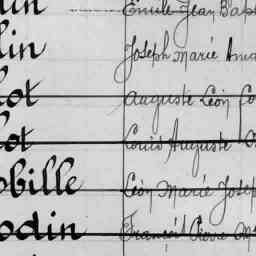 Emile Jean Bap
lin Joseph Marie Ama
lot Auguste Léon
lot Louis Auguste
obille Léon Marie Josep
odin François Pierre M